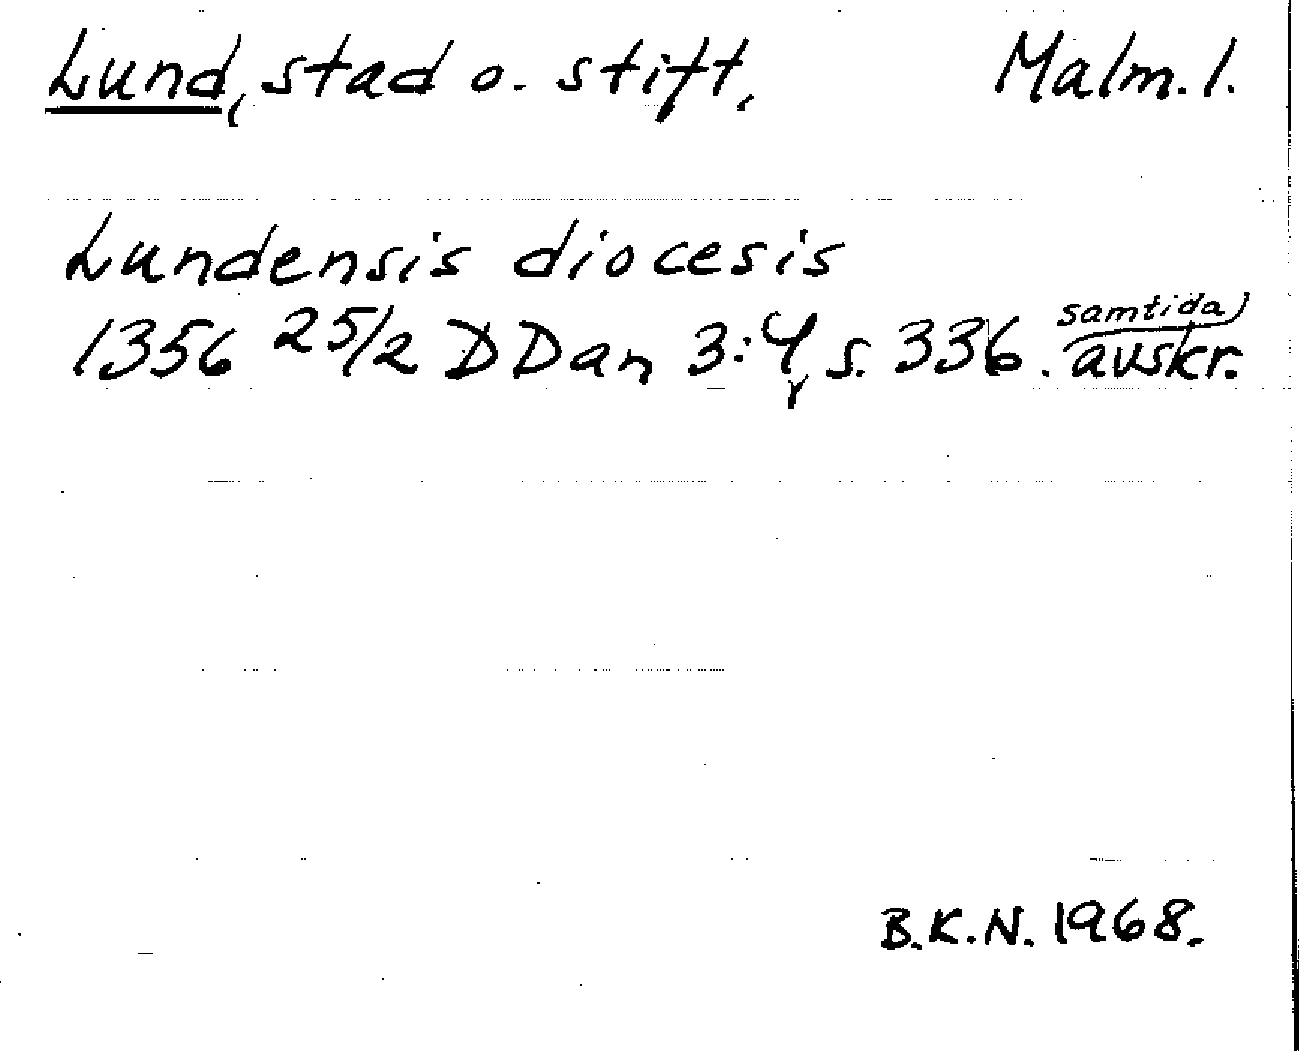 Lund, stad o. stift, Malm. l.
Lundensis diocesis
1356 25/2 DDan 3:4, s. 336. samtida avskr.
B.K.N. 1968.